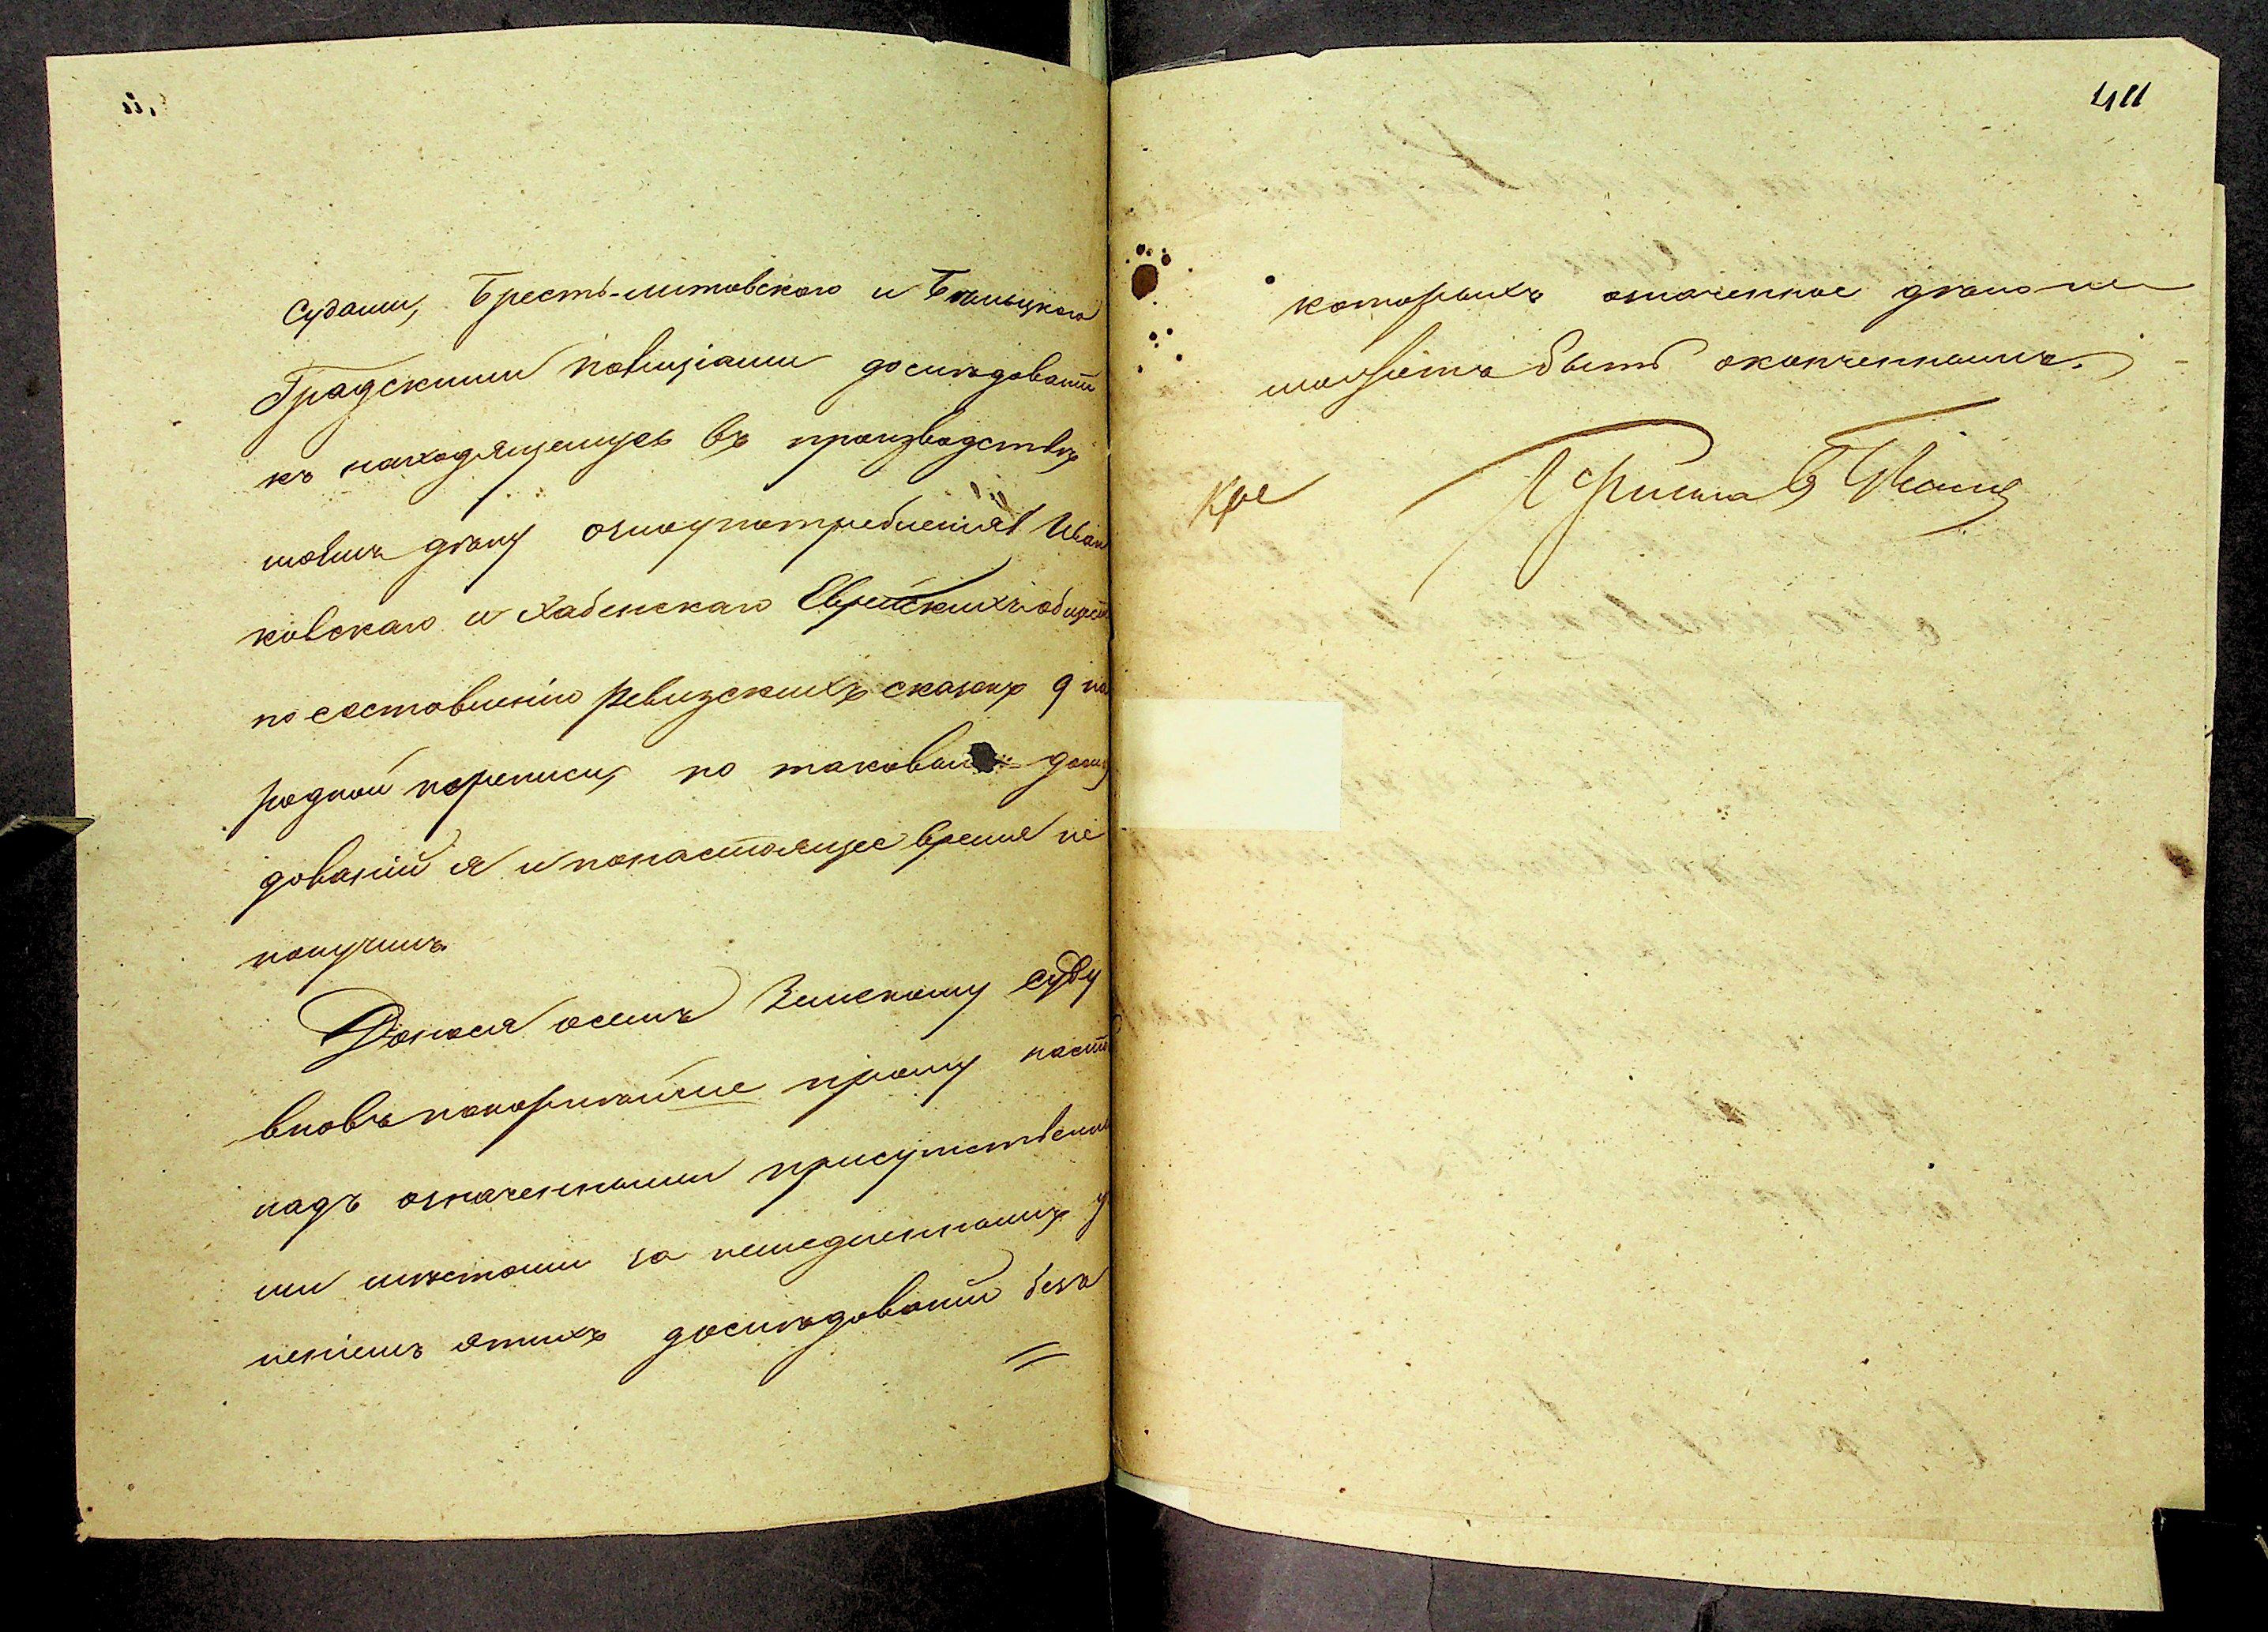 судами, Брестъ-литовскаго и Бѣльцкаго
Градскими полиціами дослѣдованій
къ находящемуся въ производствѣ
моемъ дѣлу озлоупотребленіях Иван
ковскаго и Хабенскаго Еврейскихъ общест
по составленію Ревизскихъ сказокъ 9 на
родной переписи, по таковый дослѣ
дованій я и понастоящее время не
получилъ.
Донося осемъ Земскому суду
вновь покорнѣйше прошу насто
надъ означенными присутственны
ми мѣстами за немедленнымъ у
неніемъ этихъ дослѣдованій безъ
которыхъ означенное дѣло не
можетъ быть оконченнымъ.